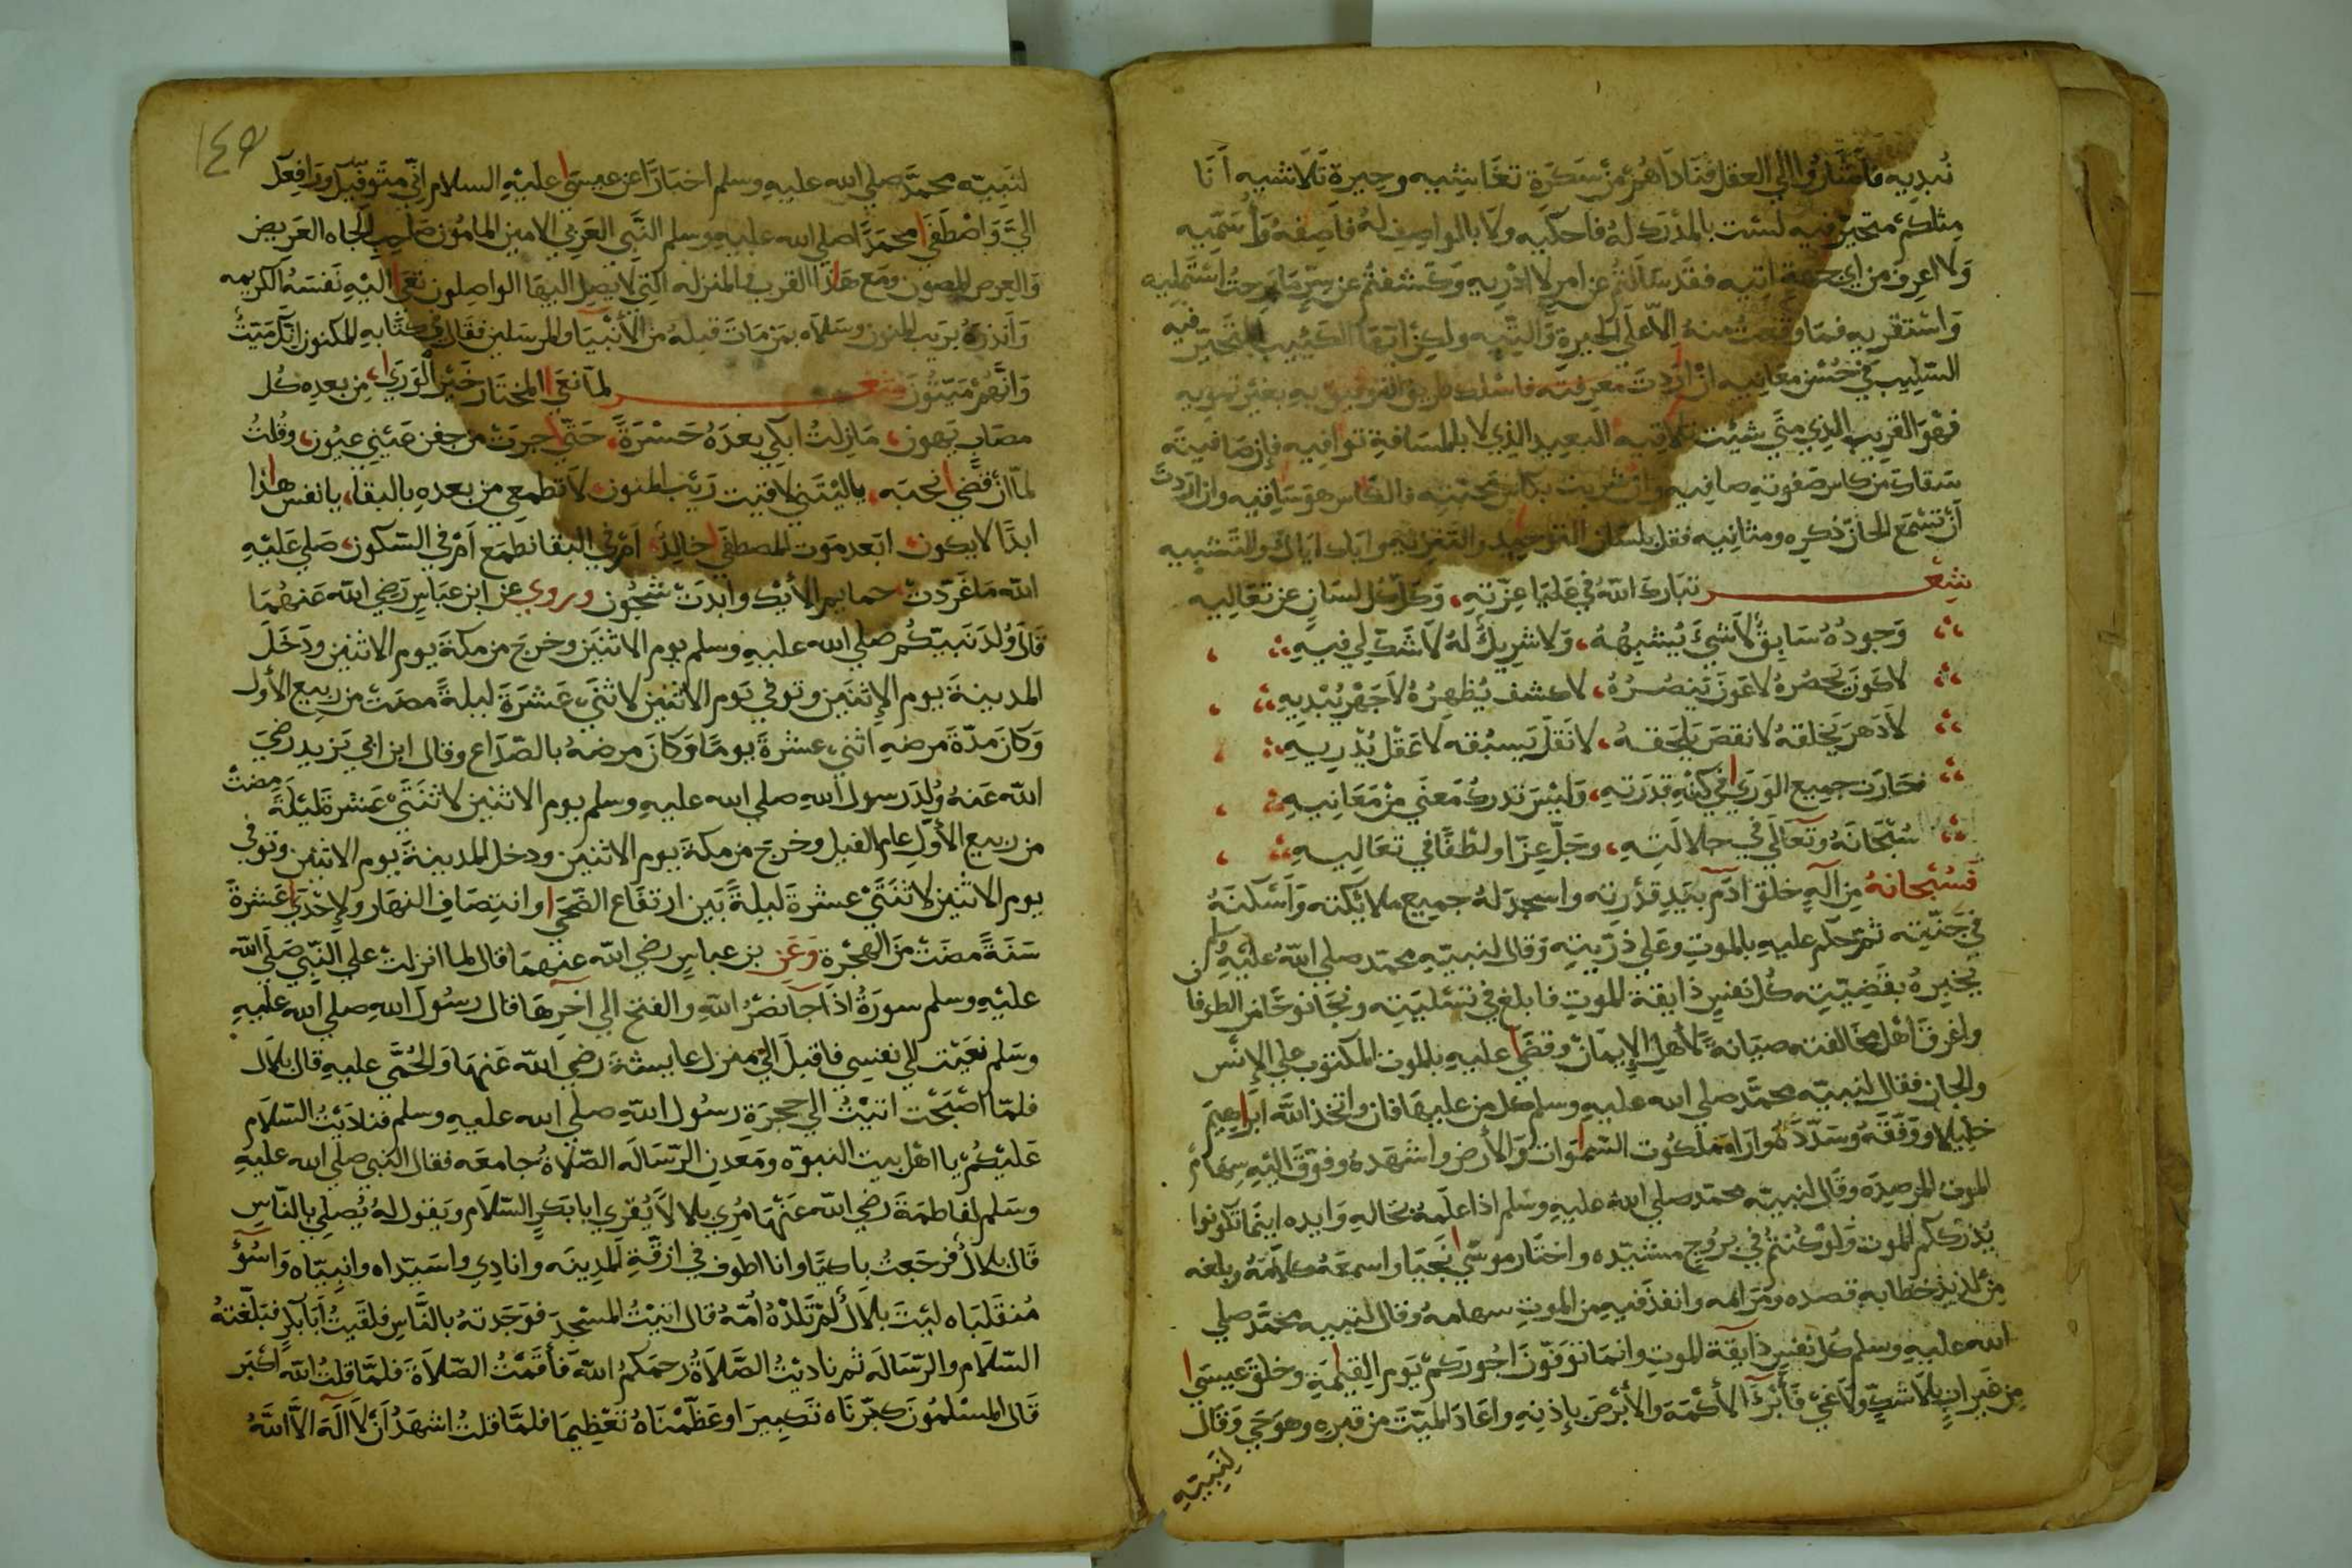 نُبديه فأشاروا الي العقل فناداهم من سكرة تغاشيه وحيرة تلاشيه أنا
مثلكم متحير فيه لست بالمدرك له فاحكيه ولا بالواصف له فاصفه وأسميه
ولا اعرف من اي جهة اتيه فقد سالتم عن امر لا ادريه وكشفتم عن سر ما برحت استمليه
واستقريه فما وقعت منه الا علي الحيرة والتيه ولكن ايها الكئيب المتحير فيه
السليب في حسن معانيه ان اردت معرفته فاسلك طريق التوفيق به بغير تمويه
فهو القريب الذي متي شئت تلاقيه البعيد الذي لا بالمسافة توافيه فإن صافيته
سقاك من كاس صفوته صافيه وان شربت بكاس محبته فالكاس هو ساقيه وان اردت
أن تسمع الحان ذكره ومثانيه فقل بلسان التوحيد والتنزيه واياك اياك والتشبيه
شعر تبارك الله في عليا عزته، وكل كل لسان عن تعاليه
وجوده سابق لا شيئ يشبهه، ولا شريك له لا شك لي فيه
لا كون يحصره لا عون ينصره، لا كشف يظهره لا جهر يبديه
لا دهر يخلقه لا نقص يلحقه، لا نقل يسبقه لا عقل يدريه
نحارت جميع الوري في كنه قدرته، وليس تدرك معني من معانيه
سبحانه وتعالي في جلالته، وجل عزا ولطفا في تعاليه
فسبحانه من اله خلق ادم بيد قدرته واسجد له جميع ملائكته وأسكنه
في جنته ثم حكم عليه بالموت وعلي ذريته وقال لنبيه محمد صلي الله عليه وسلم
يخبره بقضيته كل نفس ذايقة الموت فابلغ في تسليته ونجا نوحا من الطوفان
واغرق اهل مخالفته صيانة لأهل الإيمان وقضي عليه بالموت المكتوب علي الإنس
والجان فقال لنبيه محمد صلي الله عليه وسلم كل من عليها فان واتخذ الله ابراهيم
خليلا ووفقه وسدده واراه ملكوت السموات والأرض واشهده وفوق اليه سهام
الموت المرصده وقال لنبيه محمد صلي الله عليه وسلم اذا علمه بحاله وايده اينما تكونوا
يدرككم الموت ولو كنتم في بروج مشيده واختار موسي نجيا واسمعه كلامه وبلغه
من لذيذ خطابه قصده ومرامه وانفذ فيه من الموت سهامه وقال لنبيه محمد صلي
الله عليه وسلم كل نفس ذايقة الموت وانما توفون اجوركم يوم القيمة وخلق عيسي
من غير اب بلا شك ولا غي فأبرئ الأكمه والأبرص بإذنه واعاد الميت من قبره وهو حي وقال
لنبيه
١٤٥
لنبيه محمد صلي الله عليه وسلم اخبارا عن عيسي عليه السلام اني متوفيك ورافعك
الي واصطفي محمدا صلي الله عليه وسلم النبي العربي الامين المامون صاحب الجاه العريض
والعرض المصون ومع هذا القرب في المنزله التي لا يصل اليها الواصلون نعي اليه نفسه الكريمه
وانذره بريب المنون وسلاه بمن مات قبله من الأنبيا والمرسلين فقال في كتابه المكنون انك ميت
وانهم ميتون شعر لما نعي المختار خير الوري، من بعده كل
مصاب يهون، مازلت ابكي بعده حسرة، حتي جرت من جفن عيني عيون، وقلت
لما أن قضي نحبه، ياليتني لاقيت ريب المنون، لا تطمعي من بعده بالبقا، يا نفس هذا
ابدا لا يكون، ابعد موت المصطفي خالد، أم في البقا نطمع أم في السكون، صلي عليه
الله ما غردت، حمايم الأيك وابدت شجون وروي عن ابن عباس رضي الله عنهما
قال ولد نبيكم صلي الله عليه وسلم يوم الاثنين وخرج من مكة يوم الاثنين ودخل
المدينة يوم الاثنين وتوفي يوم الاثنين لاثنتي عشرة ليلة مضت من ربيع الأول
وكان مدة مرضه اثني عشرة يوما وكان مرضه بالصداع وقال ابن ابي يزيد رضي
الله عنه ولد رسول الله صلي الله عليه وسلم يوم الاثنين لاثنتي عشرة ليلة مضت
من ربيع الأول عام الفيل وخرج من مكة يوم الاثنين ودخل المدينة يوم الاثنين وتوفي
يوم الاثنين لاثنتي عشرة ليلة بين ارتفاع الضحي وانتصاف النهار ولإحدي عشرة
سنة مضت من الهجرة وعن بن عباس رضي الله عنهما قال لما انزلت علي النبي صلي الله
عليه وسلم سورة اذا جا نصر الله والفتح الي اخرها قال رسول الله صلي الله عليه
وسلم نعيت الي نفسي فاقبل الي منزل عايشة رضي الله عنها والحمي عليه قال بلال
فلما اصبحت اتيت الي حجرة رسول الله صلي الله عليه وسلم فناديت السلام
عليكم يا اهل بيت النبوه ومعدن الرساله الصلاة جامعه فقال النبي صلي الله عليه
وسلم لفاطمة رضي الله عنها مري بلالا يقري ابا بكر السلام ويقول له يصلي بالناس
قال بلال فرجعت باكيا وانا اطوف في ازقة المدينه وانادي واسيداه وانبياه واسوأ
منقلباه ليت بلال لم تلده امه قال اتيت المسجد فوجدته بالناس فلقيت أبا بكر فبلغته
السلام والرساله ثم ناديت الصلاة رحمكم الله فأقمت الصلاة فلما قلت الله اكبر
قال المسلمون كبرناه تكبيرا وعظمناه تعظيما فلما قلت اشهد أن لا اله الا الله